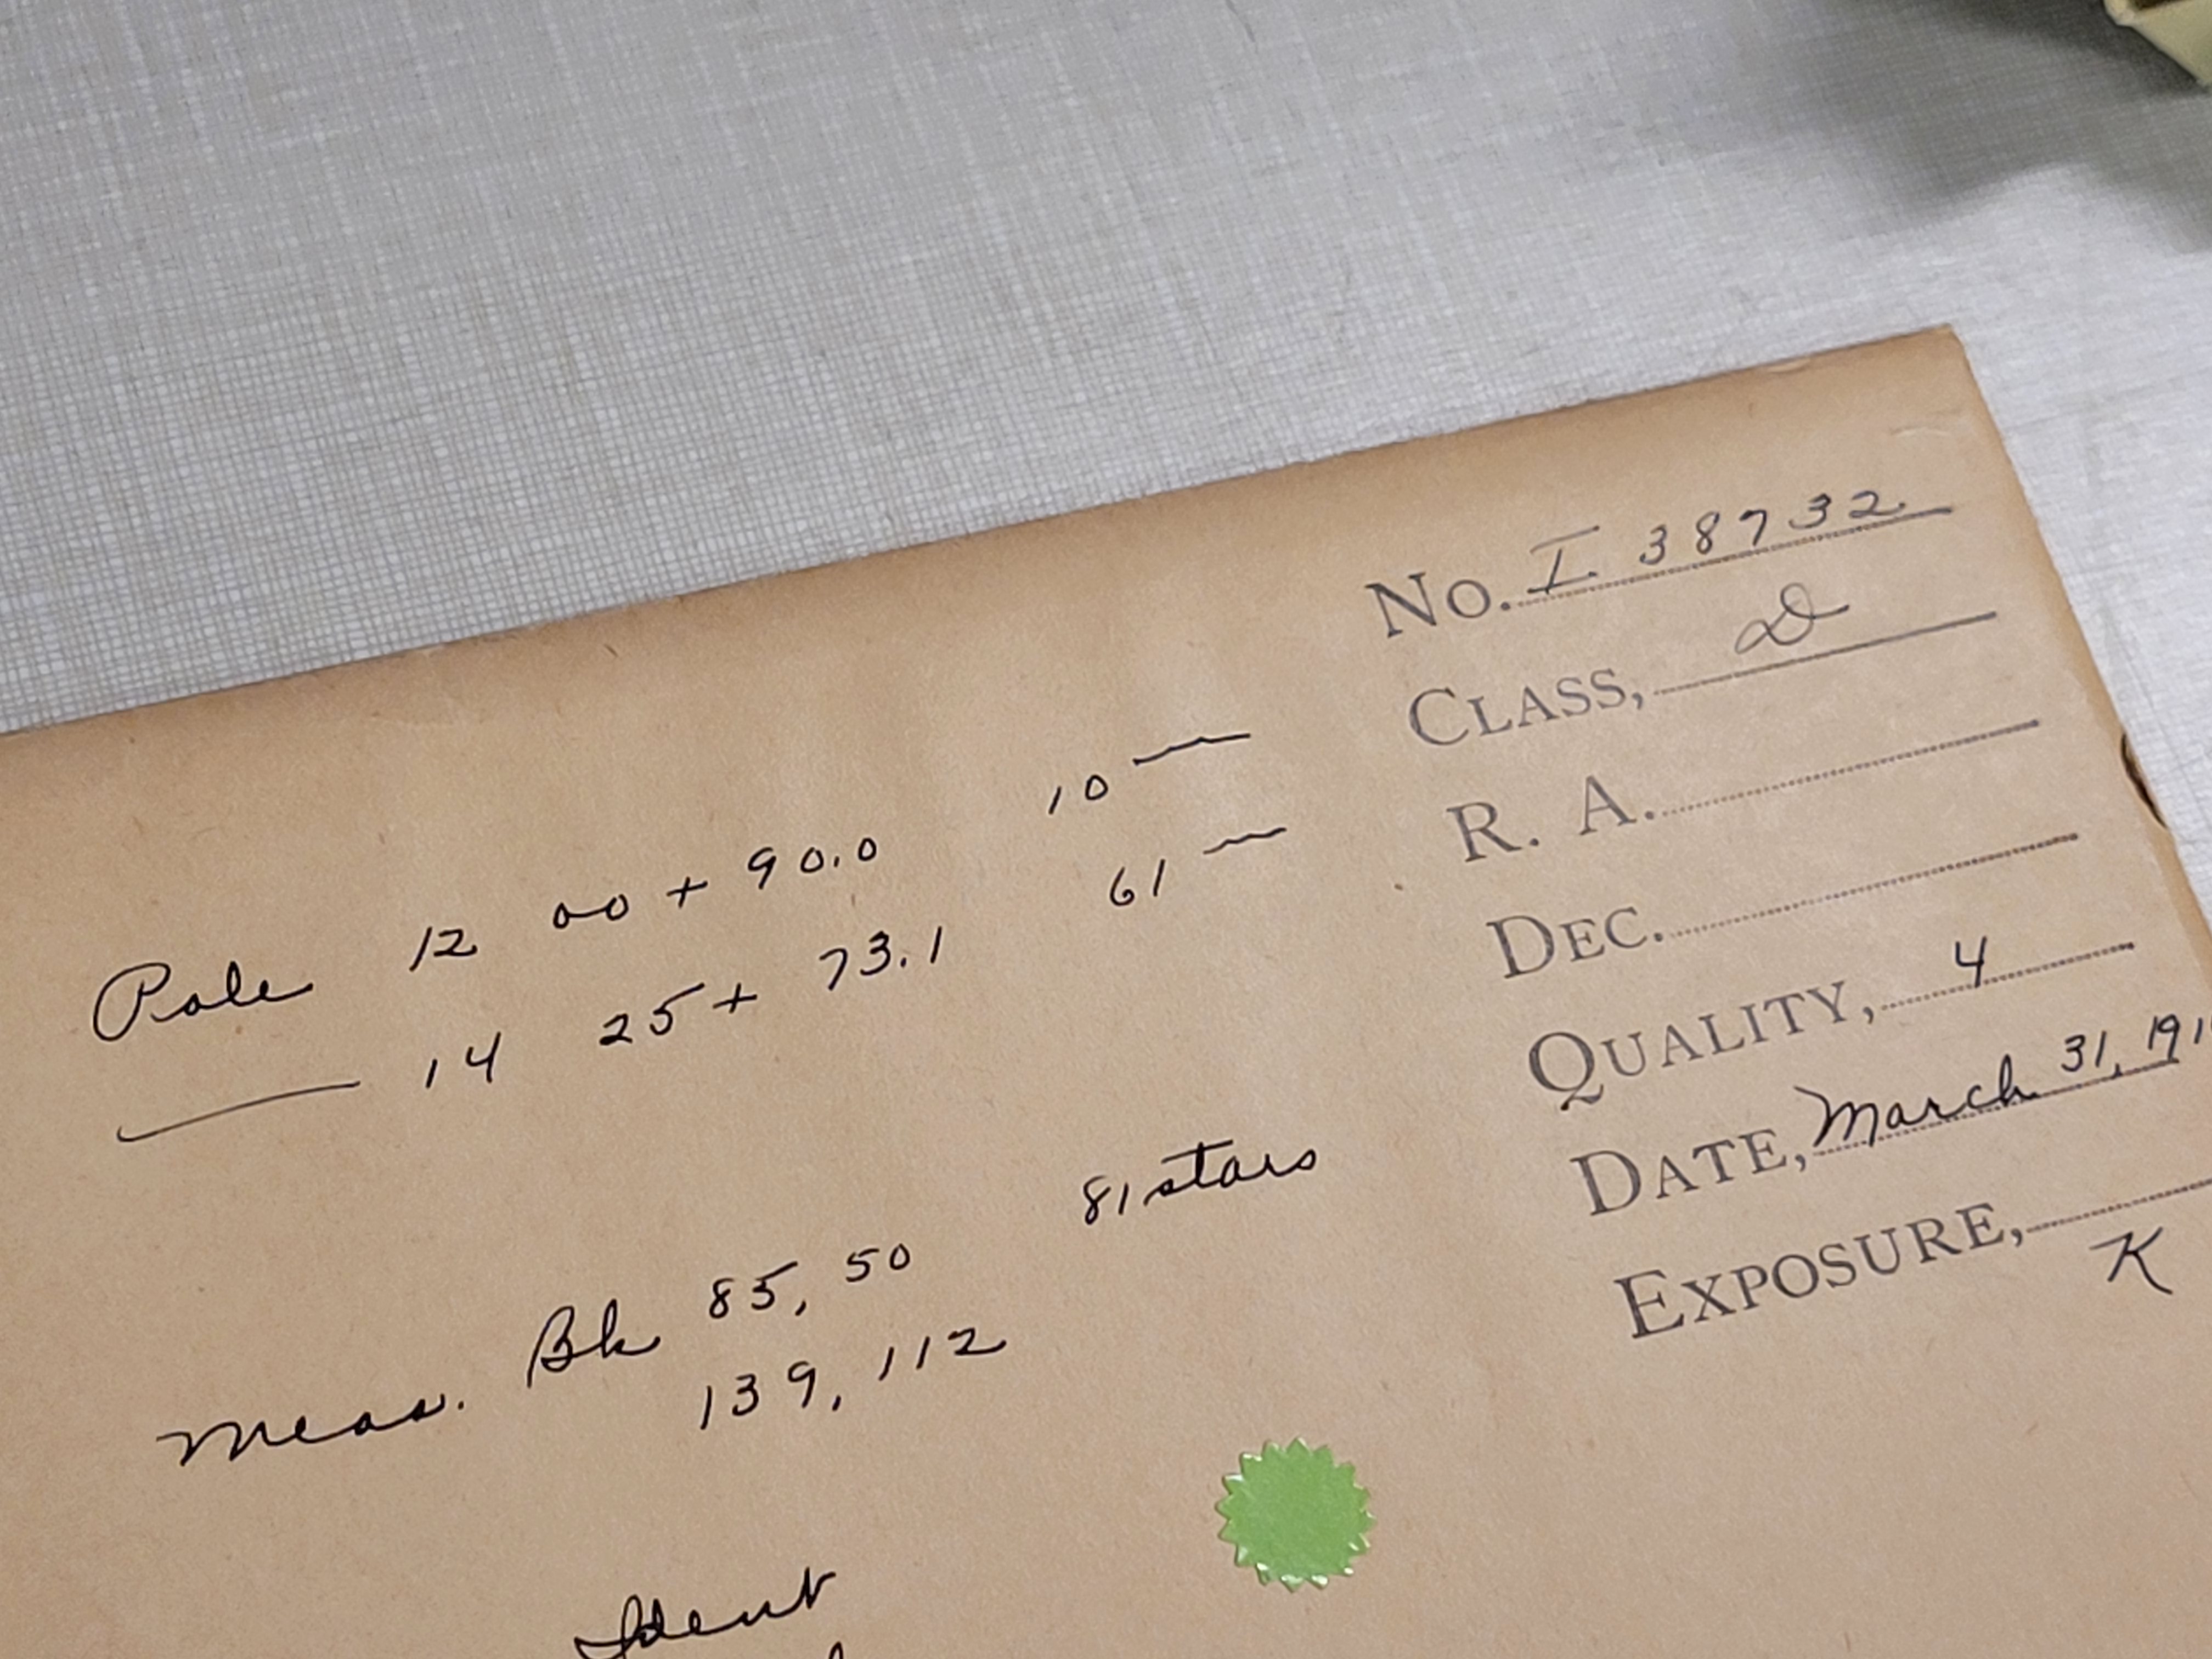 No. I 38732
CLASS, D
R. A.
DEC.
QUALITY, 4
DATE, March 31, 191
EXPOSURE,
K
Pole 12 00 + 90.0 10 —
— 14 25 + 73.1 61 —
81 stars
Meas. Bk 85, 50
139, 112
Ident